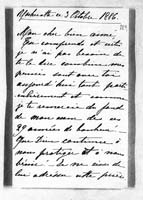 3 Octobre 1886.
Mon cher bien aimé,
Tu comprends et sais
que je n'ai pas besoin de
te le dire combien mes
pensées sont avec toi
aujourd'hui tout parti-
culièrement et
je te remercie du fond
de mon cœur des
39 années de bonheur.
Que Dieu continue à
nous protéger et à nous
bénir! Je ne cesse de
lui adresser cette prière